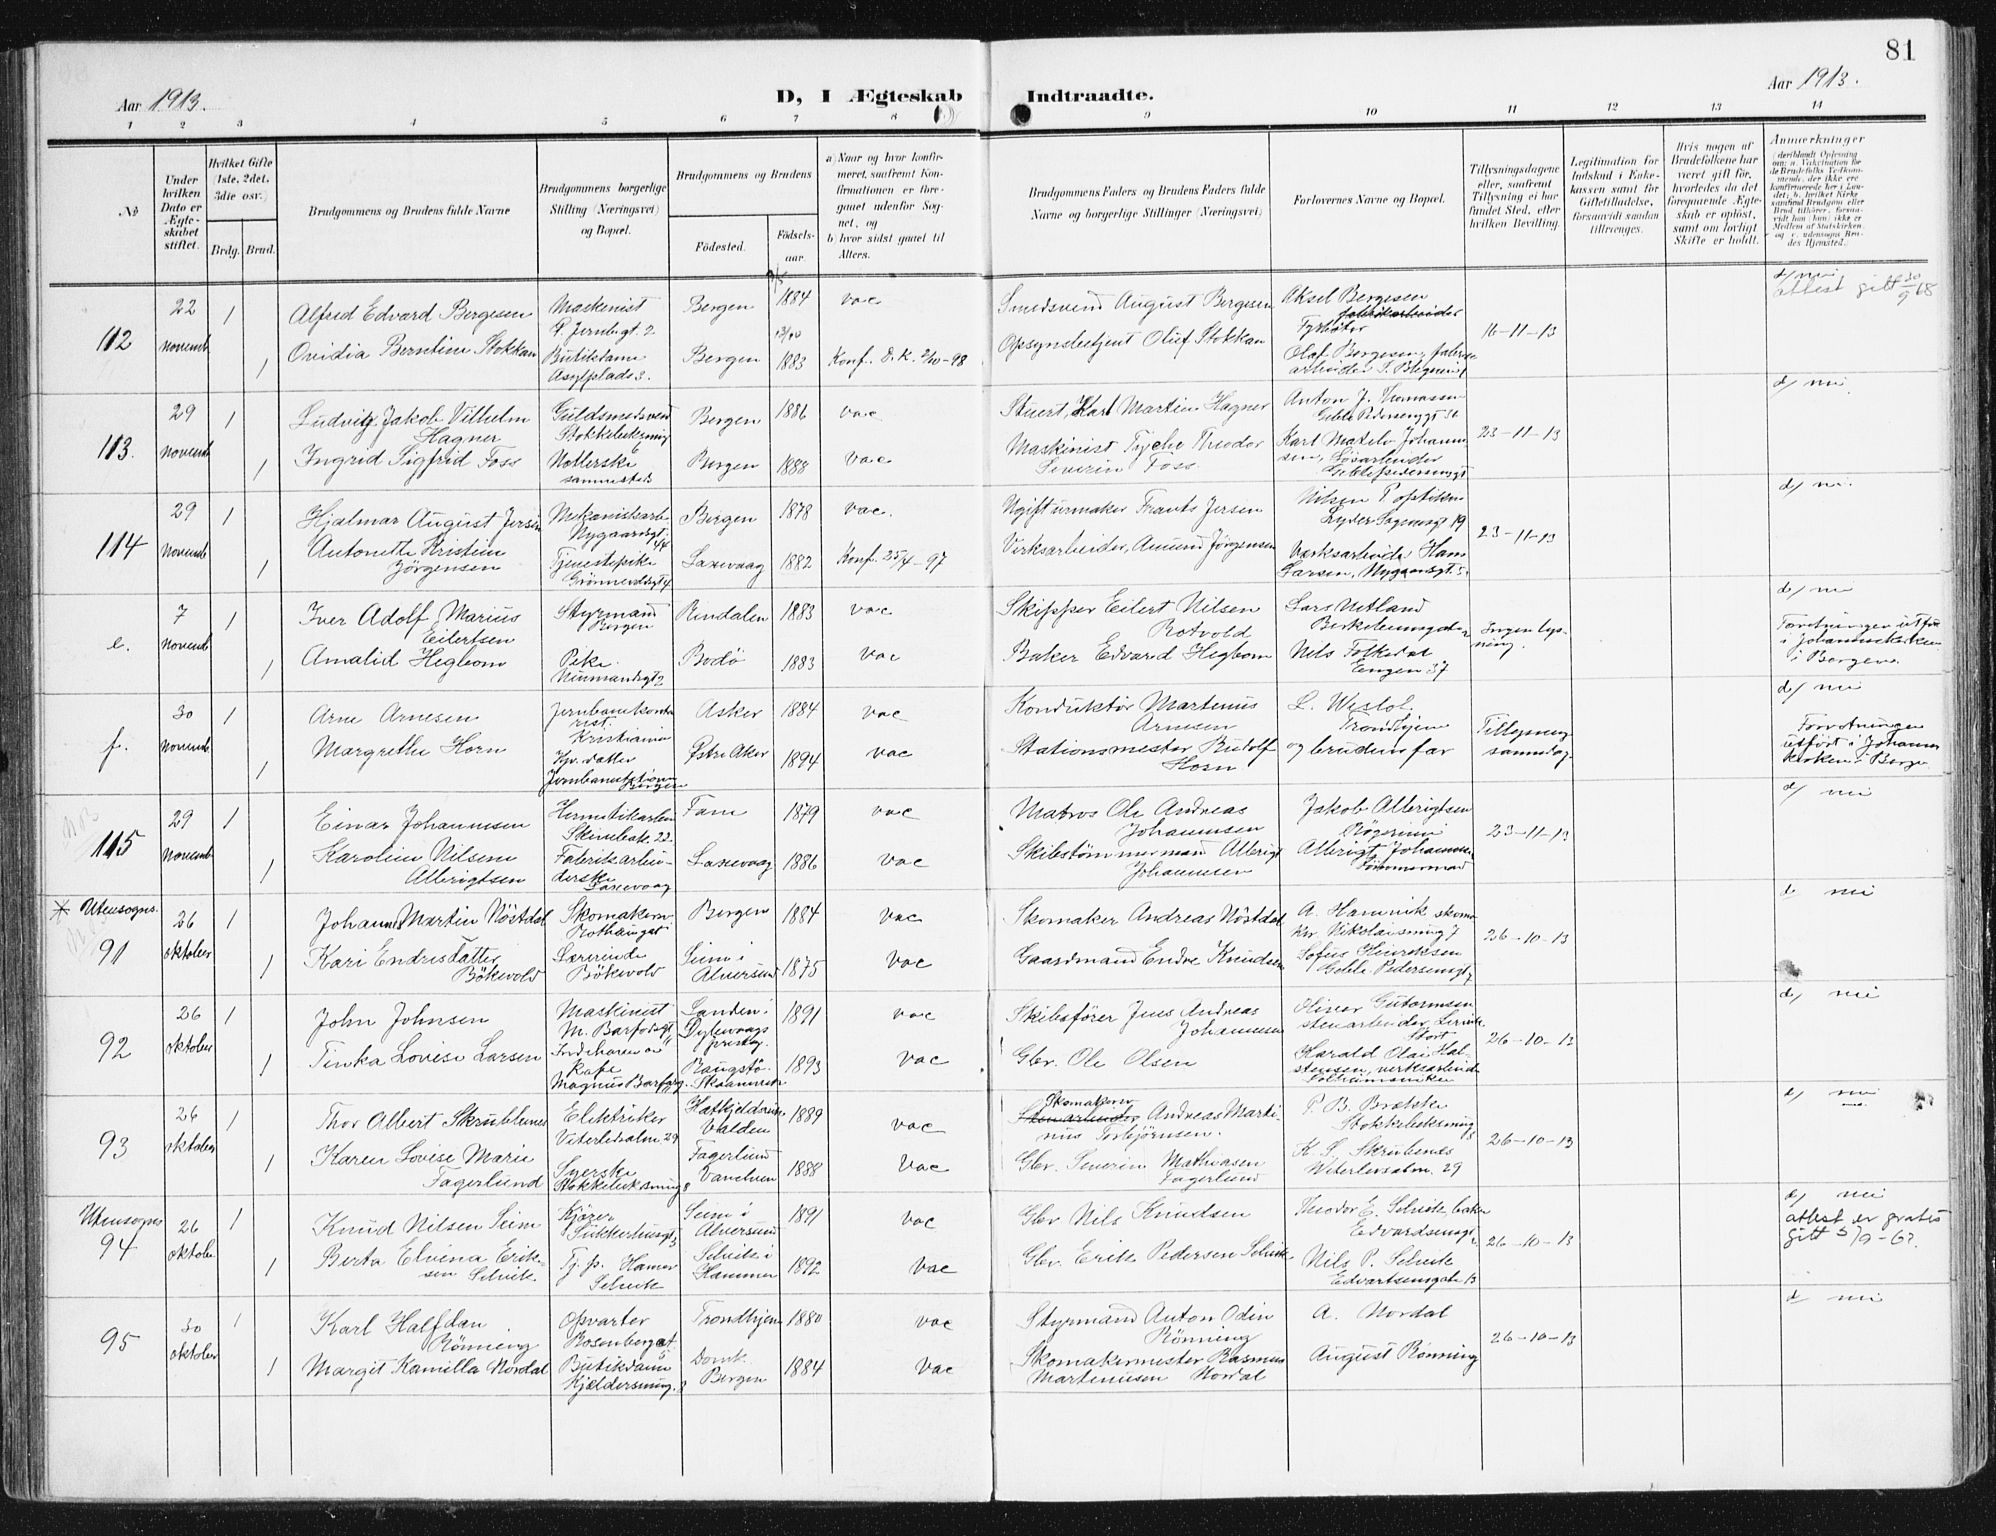 81
Aar 1913.
D, I Ægteskab Indtraadte.
Aar 1913.
1 2 3 4 5 6 7 8 9 10 11 12 13 14
No
Under hvilken Dato er Ægteskabet stiftet.
Hvilket Gifte (1ste, 2det, 3die osv.)
Brdg. Brud.
Brudgommens og Brudens fulde Navne
Brudgommens borgerlige Stilling (Næringsvei) og Bopæl.
Brudgommens og Brudens
Fødested.
Fødselsaar.
a) Naar og hvor konfirmeret, saafremt Konfirmationen er foregaaet udenfor Sognet, og
b) hvor sidst gaaet til Alters.
Brudgommens Faders og Brudens Faders fulde Navne og borgerlige Stillinger (Næringsvei)
Forlovernes Navne og Bopæl.
Tillysningsdagene eller, saafremt Tillysning ei har fundet Sted, efter hvilken Bevilling.
Legitimation for Indskud i Enkekassen samt for Giftetilladelse, forsaavidt saadan tiltrænges.
Hvis nogen af Brudefolkene har været gift før, hvorledes da det foregaaende Ægteskab er opløst, samt om lovligt Skifte er holdt.
Anmærkninger
112
22 novemb
1 Alfred Edvard Bergesen Maskinist Bergen 1884 vac
Smedsvend August Bergesen Aksel Bergesen
Fyrbøter
16-11-13
attest gitt 30/9 68
1 Ovidia Berntine Stokkan Butikdame Asylplads 3. Bergen 1883 Konf. D. K. 2/10-98
Opsynsbetjent Oluf Stokkan Olaf Bergesen
113.
29 novemb
1 Ludvig Jakob Vilhelm Hagner Guldsmedsvend Bergen 1886 vac
Stuert, Karl Martin Hagner Anton J. Thomassen
23-11-13
1 Ingrid Sigfrid Foss Bergen 1888 vac
Maskinist Tyche Theodor Severin Foss Karl Johannesen, Løsarbeider
114
29 novemb
1 Hjalmar August Jersin Mekanikarb. Nygaardsgt. Bergen 1878 vac.
Ugift urmaker Frants Jersin Nilsen P optiker Lyder Sagensgt 19
23-11-13
1 Antonette Kristine Jørgensen Tjenestepike Laxevaag 1882 Konf. 25/4-97
Verksarbeider, Amund Jørgensen Værksarbeider Hans Larsen, Nygaardsgt.
e.
7 novemb
1 Iver Adolf Marius Eilertsen Styrmand Bergen Rindalen 1883 vac
Skipper Eilert Nilsen Rotvold Lars Netland
Ingen lysning.
Forretningen utført i Johanneskirken i Bergen.
1 Amalid Hegbom Pike Neumansgt 2 Bodø 1883 vac
Baker Edvard Hegbom Nils Folkedal Engen 37
f.
30 novemb
1 Arne Arnesen Kristiania Asker 1884 vac
Konduktør Martenus Arnesen Trondhjem
Tillysning samme dag.
Forretningen utført i Johanneskirken i Bergen
1 Margrethe Horn Hjv. datter Jernbanestationen Bergen Østre Aker 1894 vac
Stationsmester Rudolf Horn og brudens far
115
29 novemb
1 Einar Johannesen Fane 1879 vac
Matros Ole Andreas Johannesen Jakob Albrigtsen
23-11-13
1 Karoline Nilsine Albrigtsen Fabrikarbeiderske Laxevaag Laxevaag 1886 vac
Skibstømmermand Albrigt Johannesen Albrigt Johannesen Tømmermand
Utensogns.
91
26 oktober
1 Johannes Martin Nøstdal Skomaker Bergen 1884 vac
Skomaker Andreas Nøstdal A. Hamnik
26-10-13
1 Kari Endresdatter Bøkevold Lærerinde Bøkevold Seim i Alversund 1875 vac
Gaardmand Endre Knudsen Sofus Henriksen
92
26 oktober
1 John Johnsen Maskinist M. Barfodsgt 1891 vac
Skibsfører Jens Andreas Johannesen Oliver Gutormsen stenarbeider
26-10-13
1 Tinka Lovise Larsen Magnus Barfodsg. 1893 vac
Gbr. Ole Olsen Harald Olai Halstensen, verksarbeider
93
26 oktober
1 Thor Albert Skrublenes Elektriker 1889 vac
Skomakersv Andreas Martinus Torbjørnsen. P. B. Brekke
26-10-13
1 Karen Lovise Marie Fagerlund Syerske Fagerlund Vanelven 1888 vac
Gbr. Severin Mathiasen Fagerlund K. S. Skrubenes
Utensogns
94
26 oktober
1 Knud Nilsen Seim Kjører Seim i Alversund 1891 vac
Gbr Nils Knudsen Theodor E. Selvik baker
26-10-13
attest er gratis gitt 5/9-62.
1 Berta Elvina Eriksen Selvik. Tj. p. Hamer Selvik Selvik i Hammer 1892 vac
Gbr. Erik Pedersen Selvik Nils P. Selvik Edvartsensgate 13
95
30 oktober
1 Karl Halfdan Rönning Opvarter Rosenberggt. Trondhjem 1880 vac
Styrmand Anton Odin Rönning A. Nordal
26-10-13
1 Margit Kamilla Nordal Butikdame Domk. Bergen 1884 vac
Skomakermester Rasmus Martinusen Nordal August Rönning